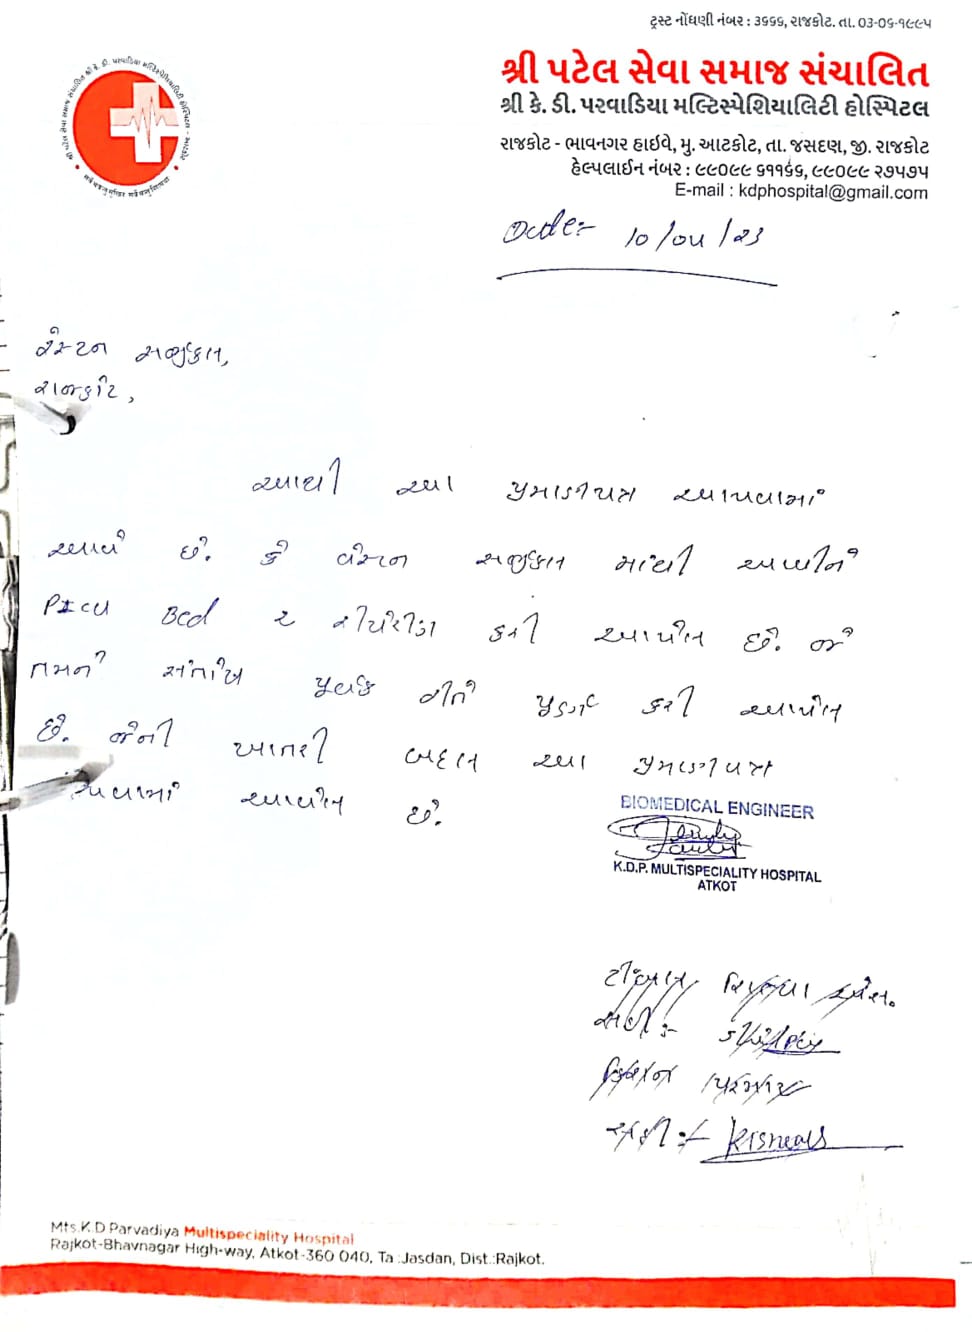 ટ્રસ્ટ નોંધણી નંબર : ૩૬૬૬, રાજકોટ. તા. ૦૩-૦૬-૧૯૯૫
શ્રી પટેલ સેવા સમાજ સંચાલિત
શ્રી કે. ડી. પરવાડિયા મલ્ટિસ્પેશિયાલિટી હોસ્પિટલ
રાજકોટ - ભાવનગર હાઇવે, મુ. આટકોટ, તા. જસદણ, જી. રાજકોટ
હેલ્પલાઈન નંબર : ૯૯૦૯૯ ૬૧૧૬૬, ૯૯૦૯૯ ૨૭૫૭૫
E-mail : kdphospital@gmail.com
Date:- ૧૦/૦૫/૨૩
વેસ્ટન
રાજકોટ,
આથી આ પ્રમાણપત્ર આપવામાં
આવે છે. કે વેસ્ટન માંથી આવીને
PICU Bed ૨ રીપેરીંગ કરી આપેલ છે. જે
તમને સંતોષ પુર્વક રીતે પુર્ણ કરી આપેલ
છે. જેની ખાતરી બદલ આ પ્રમાણપત્ર
આપવામાં આવેલ છે.
BIOMEDICAL ENGINEER
K.D.P. MULTISPECIALITY HOSPITAL
ATKOT
સહી :-
સહી :-
Mts.K.D.Parvadiya Multispeciality Hospital
Rajkot-Bhavnagar High-way, Atkot-360 040, Ta :Jasdan, Dist.:Rajkot.